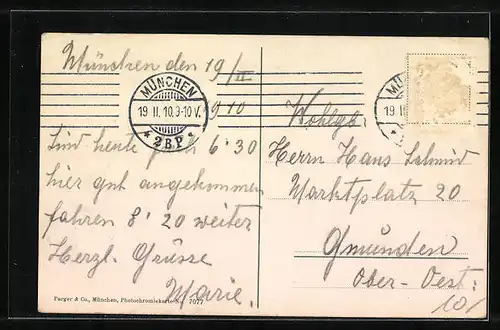 München den 19/II
1910
MÜNCHEN
19 II. 10. 9-10 V.
* 2BP *
Sind heute früh 6·30
hier gut angekommen
fahren 8·20 weiter
Herzl. Grüsse
Marie.
Purger & Co., München, Photochromiekarte No. 7077
MÜ
19 II
Wohlgb.
Herrn Hans Schmid
Marktplatz 20
Gmunden
Ober-Oest: